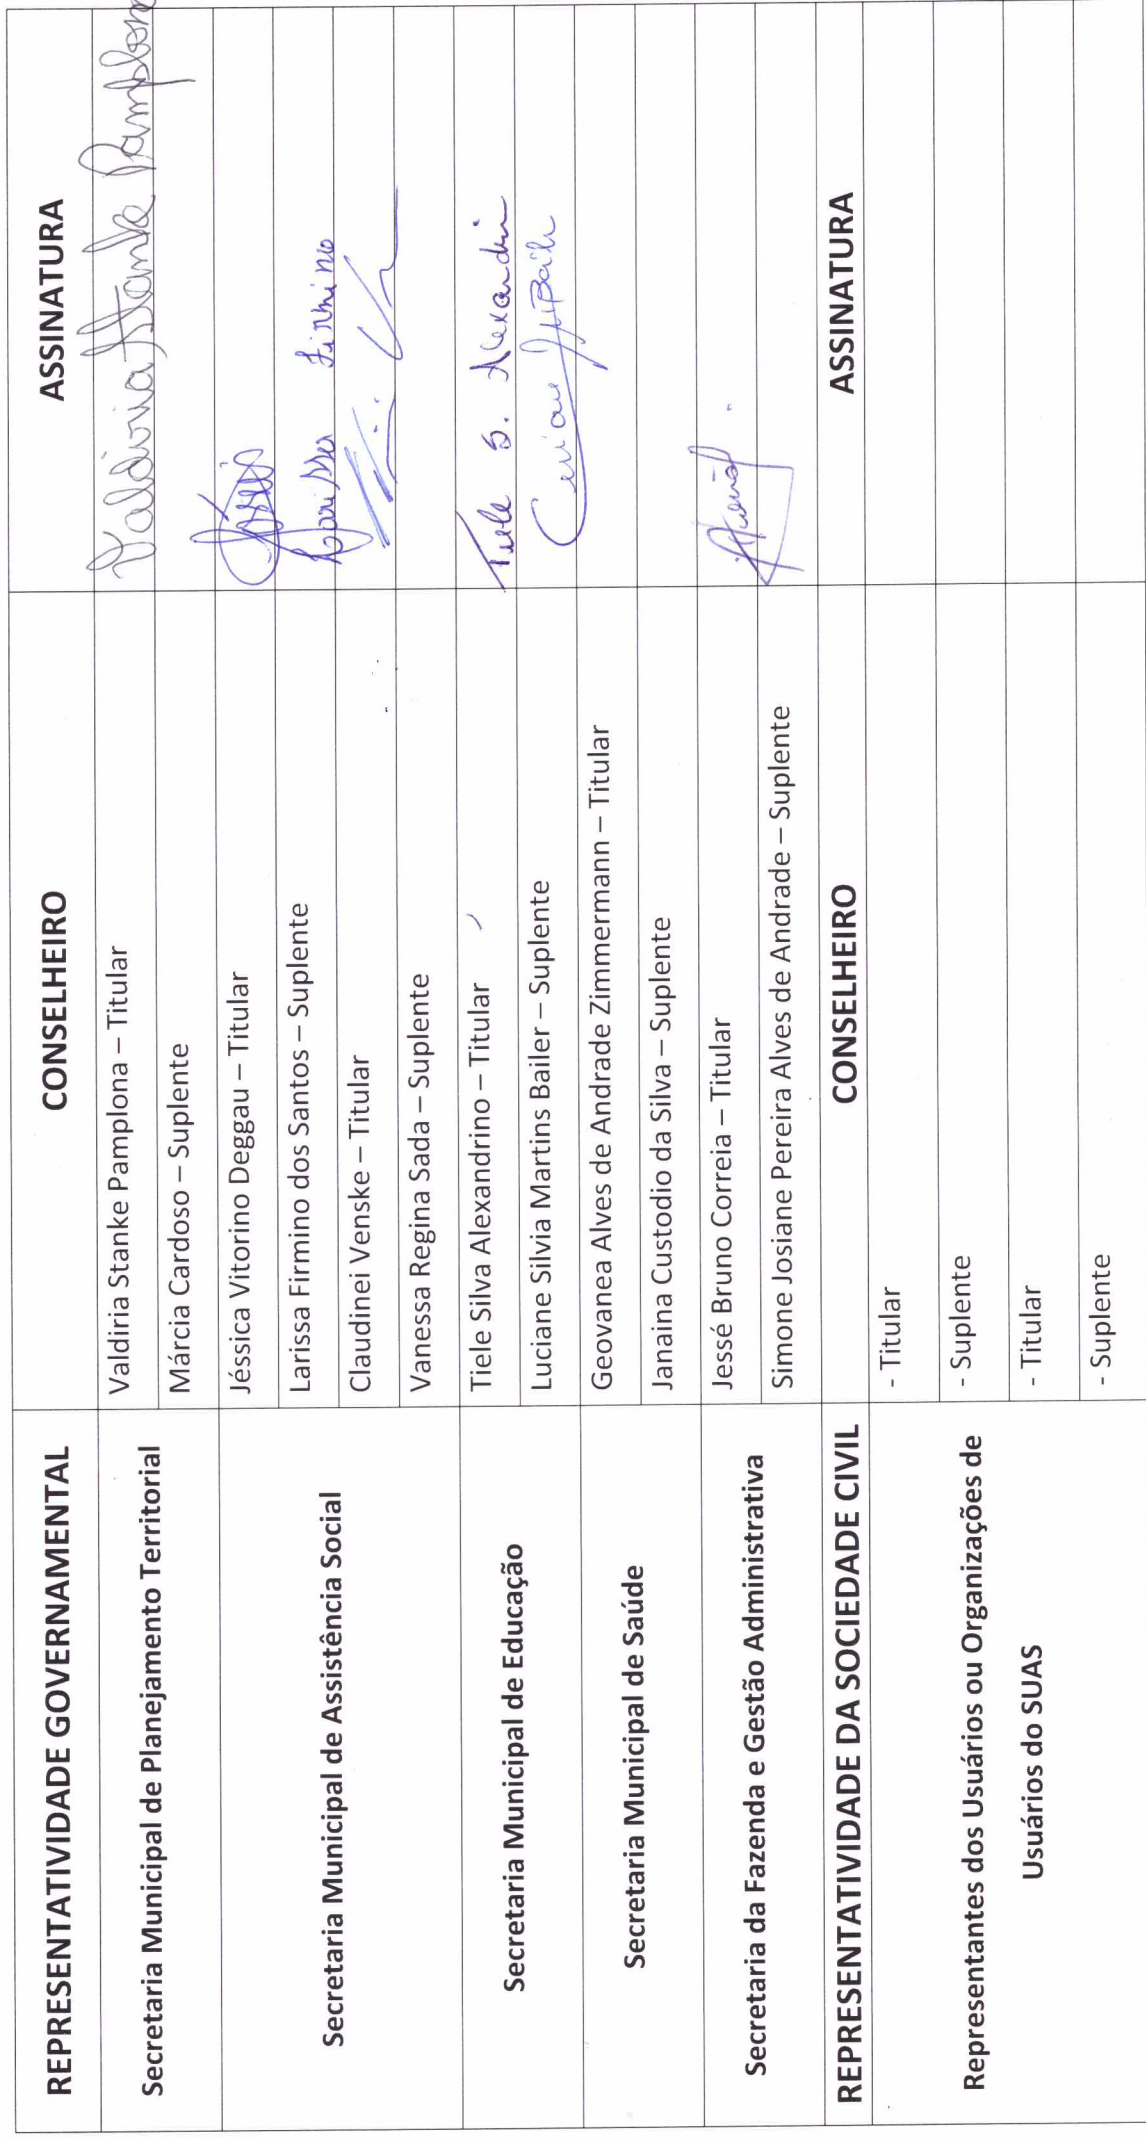 REPRESENTATIVIDADE GOVERNAMENTAL CONSELHEIRO ASSINATURA
Secretaria Municipal de Planejamento Territorial
Valdiria Stanke Pamplona – Titular Valdiria Stanke Pamplona
Márcia Cardoso – Suplente
Secretaria Municipal de Assistência Social
Jéssica Vitorino Deggau – Titular
Larissa Firmino dos Santos – Suplente Larissa Firmino
Claudinei Venske – Titular
Vanessa Regina Sada – Suplente
Secretaria Municipal de Educação
Tiele Silva Alexandrino – Titular Tiele S.
Luciane Silvia Martins Bailer – Suplente
Secretaria Municipal de Saúde
Geovanea Alves de Andrade Zimmermann – Titular
Janaina Custodio da Silva – Suplente
Secretaria da Fazenda e Gestão Administrativa
Jessé Bruno Correia – Titular
Simone Josiane Pereira Alves de Andrade – Suplente
REPRESENTATIVIDADE DA SOCIEDADE CIVIL CONSELHEIRO ASSINATURA
Representantes dos Usuários ou Organizações de
Usuários do SUAS
- Titular
- Suplente
- Titular
- Suplente